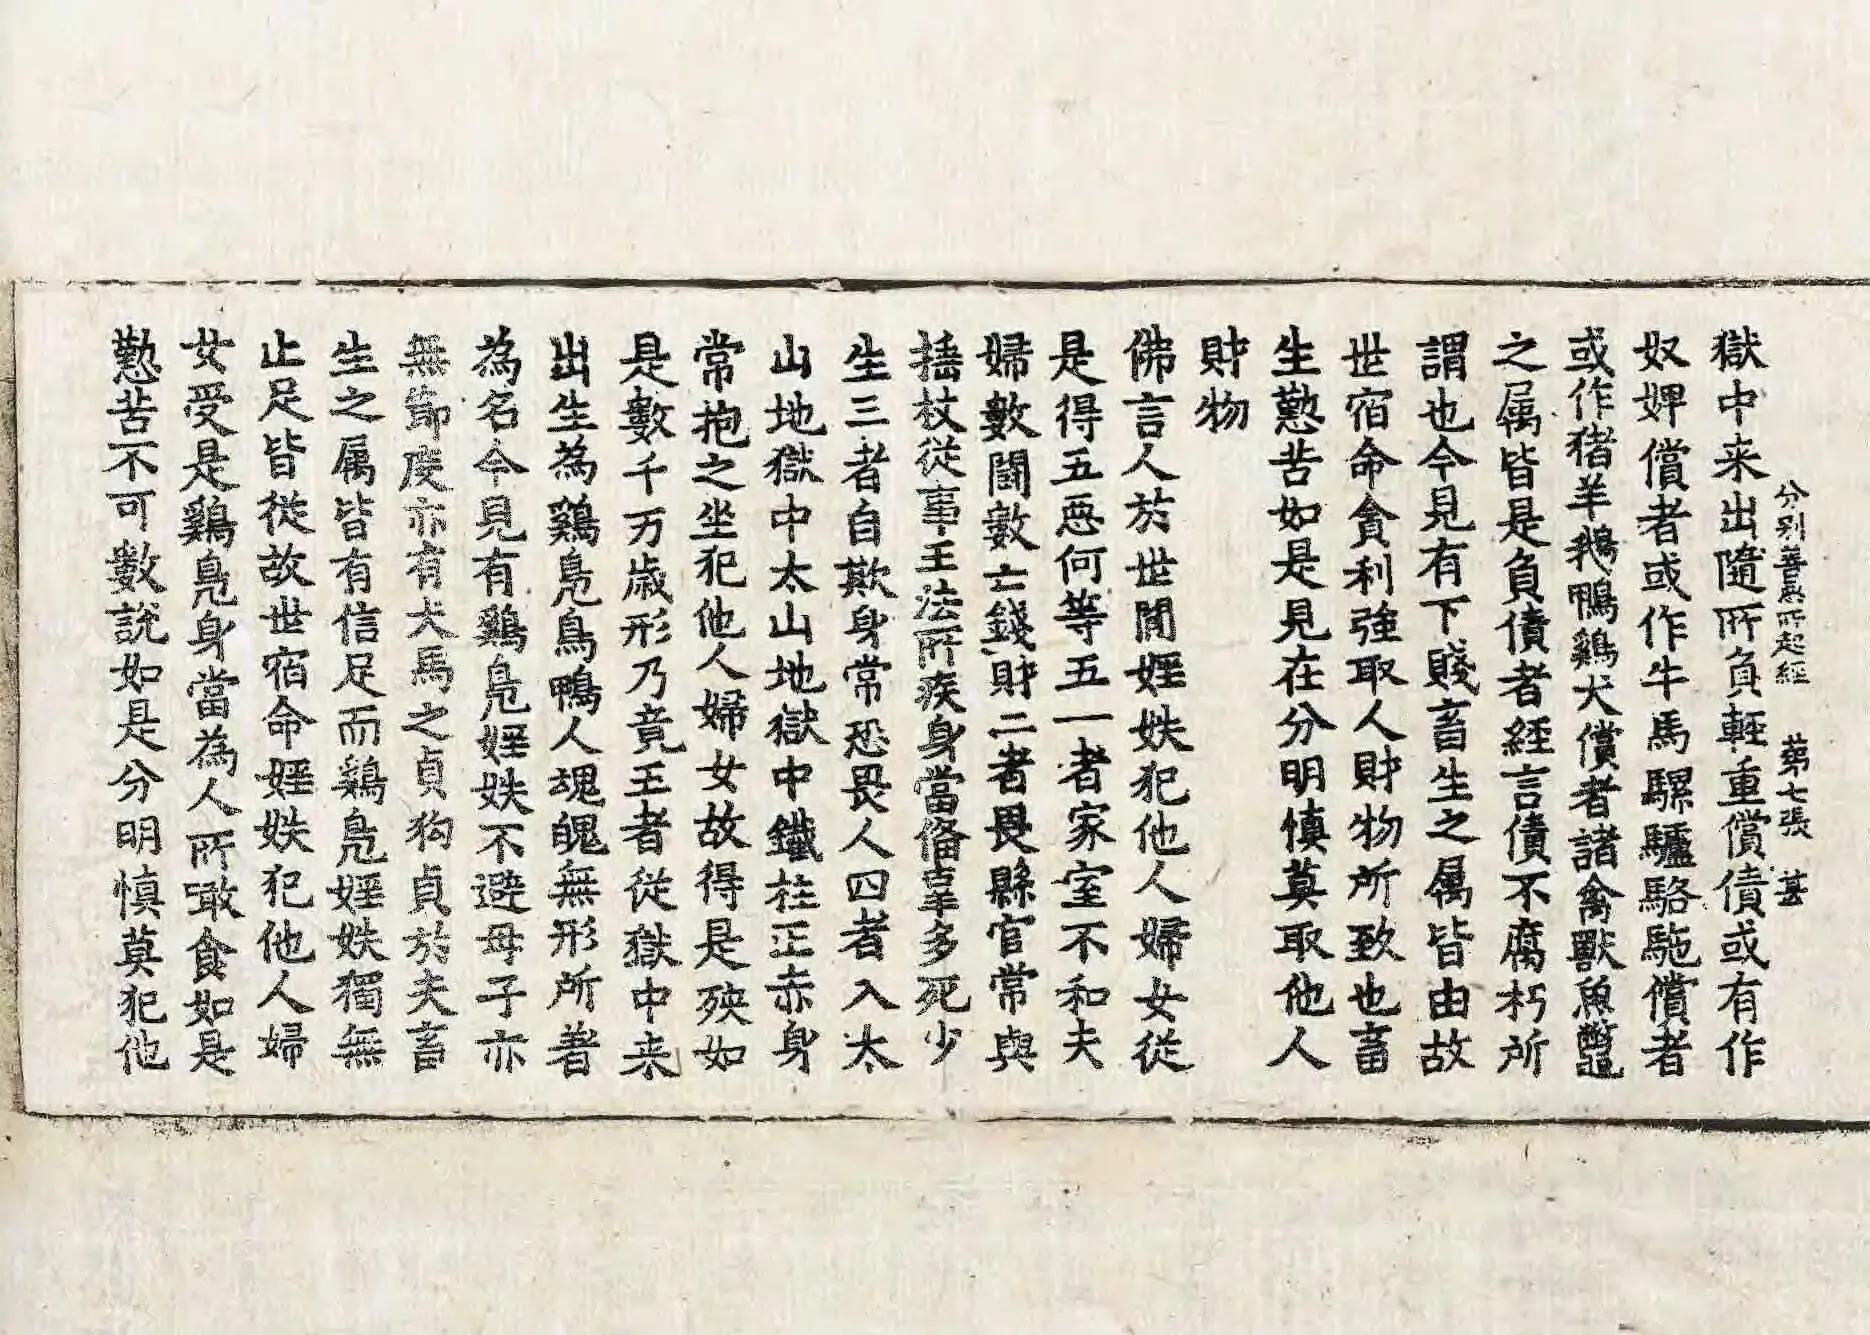 分别善惡所起經　第七張　甚
獄中来出隨所負輕重償債或有作
奴婢償者或作牛馬騾驢駱駞償者
或作猪羊鵝鴨鷄犬償者諸禽獸魚鼈
之属皆是負債者經言債不腐朽所
謂也今見有下賤畜生之属皆由故
世宿命貪利強取人財物所致也畜
生懃苦如是見在分明慎莫取他人
財物
佛言人於世閒婬妷犯他人婦女從
是得五惡何等五一者家室不和夫
婦數鬪數亡錢財二者畏縣官常與
捶杖從事王法所疾身當備辜多死少
生三者自欺身常恐畏人四者入太
山地獄中太山地獄中鐵柱正赤身
常抱之坐犯他人婦女故得是殃如
是數千万歳形乃竟五者從獄中来
出生為鷄鳧鳥鴨人魂魄無形所著
為名今見有鷄鳧婬妷不避母子亦
無節度亦有犬馬之貞狗貞於夫畜
生之属皆有信足而鷄鳧婬妷獨無
止足皆從故世宿命婬妷犯他人婦
女受是鷄鳧身當為人所噉食如是
懃苦不可數說如是分明慎莫犯他